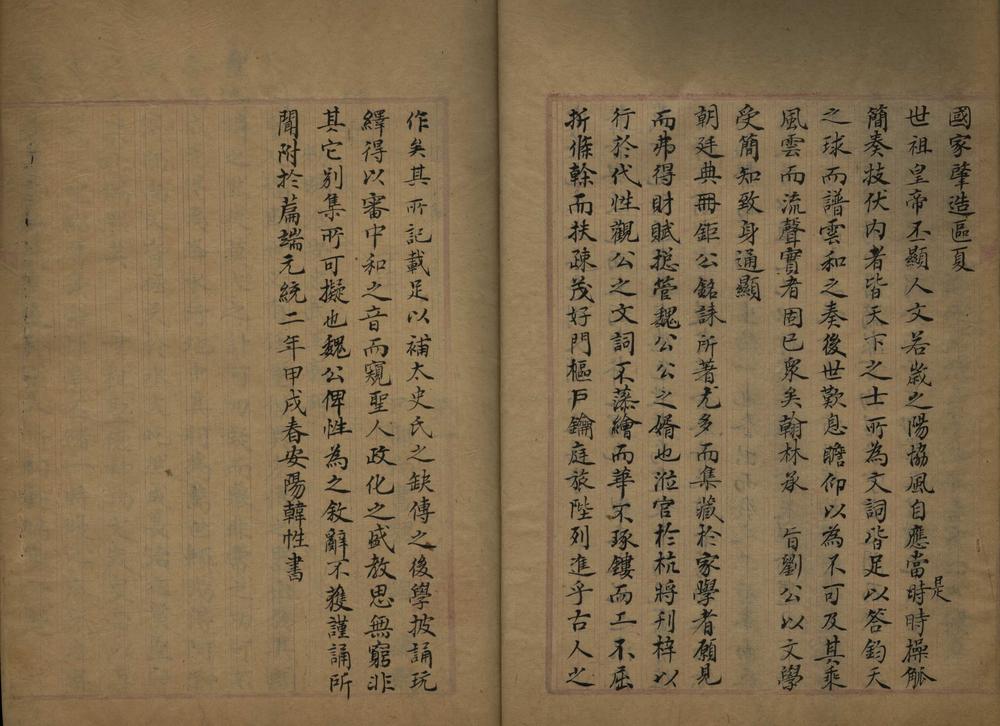 國家肇造區夏
世祖皇帝丕顯人文若歲之陽協風自應當是時時操觚
簡奏技伏內者皆天下之士所為文詞皆足以答鈞天
之球而譜雲和之奏後世歎息瞻仰以為不可及其乘
風雲而流聲實者固已衆矣翰林承 旨劉公以文學
受簡知致身通顯
朝廷典冊鉅公銘誄所著尤多而集藏於家學者願見
而弗得財賦摠管魏公公之婿也涖官於杭將刊梓以
行於代性觀公之文詞不藻繪而華不琢鏤而工不屈
折條榦而扶疎茂好門樞戶鑰庭旅陛列進乎古人之
作矣其所記載足以補太史氏之缺傳之後學披誦玩
繹得以審中和之音而窺聖人政化之盛教思無窮非
其它別集所可擬也魏公俾性為之敘辭不獲謹誦所
聞附於篇端元統二年甲戌春安陽韓性書